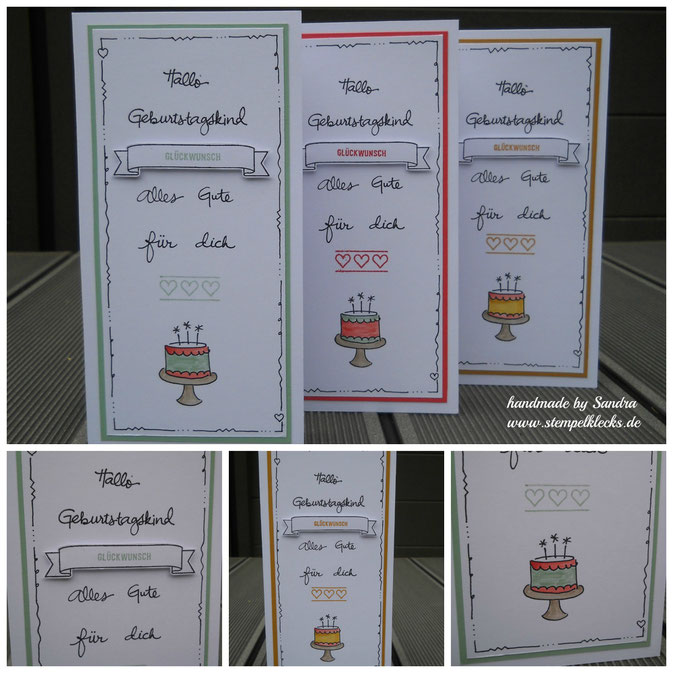 Hallo
Geburtstagskind
GLÜCKWUNSCH
Alles Gute
für dich
Hallo
Geburtstagskind
GLÜCKWUNSCH
Alles Gute
für dich
Hallo
Geburtstagskind
GLÜCKWUNSCH
Alles Gute
für dich
handmade by Sandra
www.stempelklecks.de
Hallo
Geburtstagskind
GLÜCKWUNSCH
Alles Gute
für dich
Hallo
Geburtstagskind
GLÜCKWUNSCH
Alles Gute
für dich
für dich